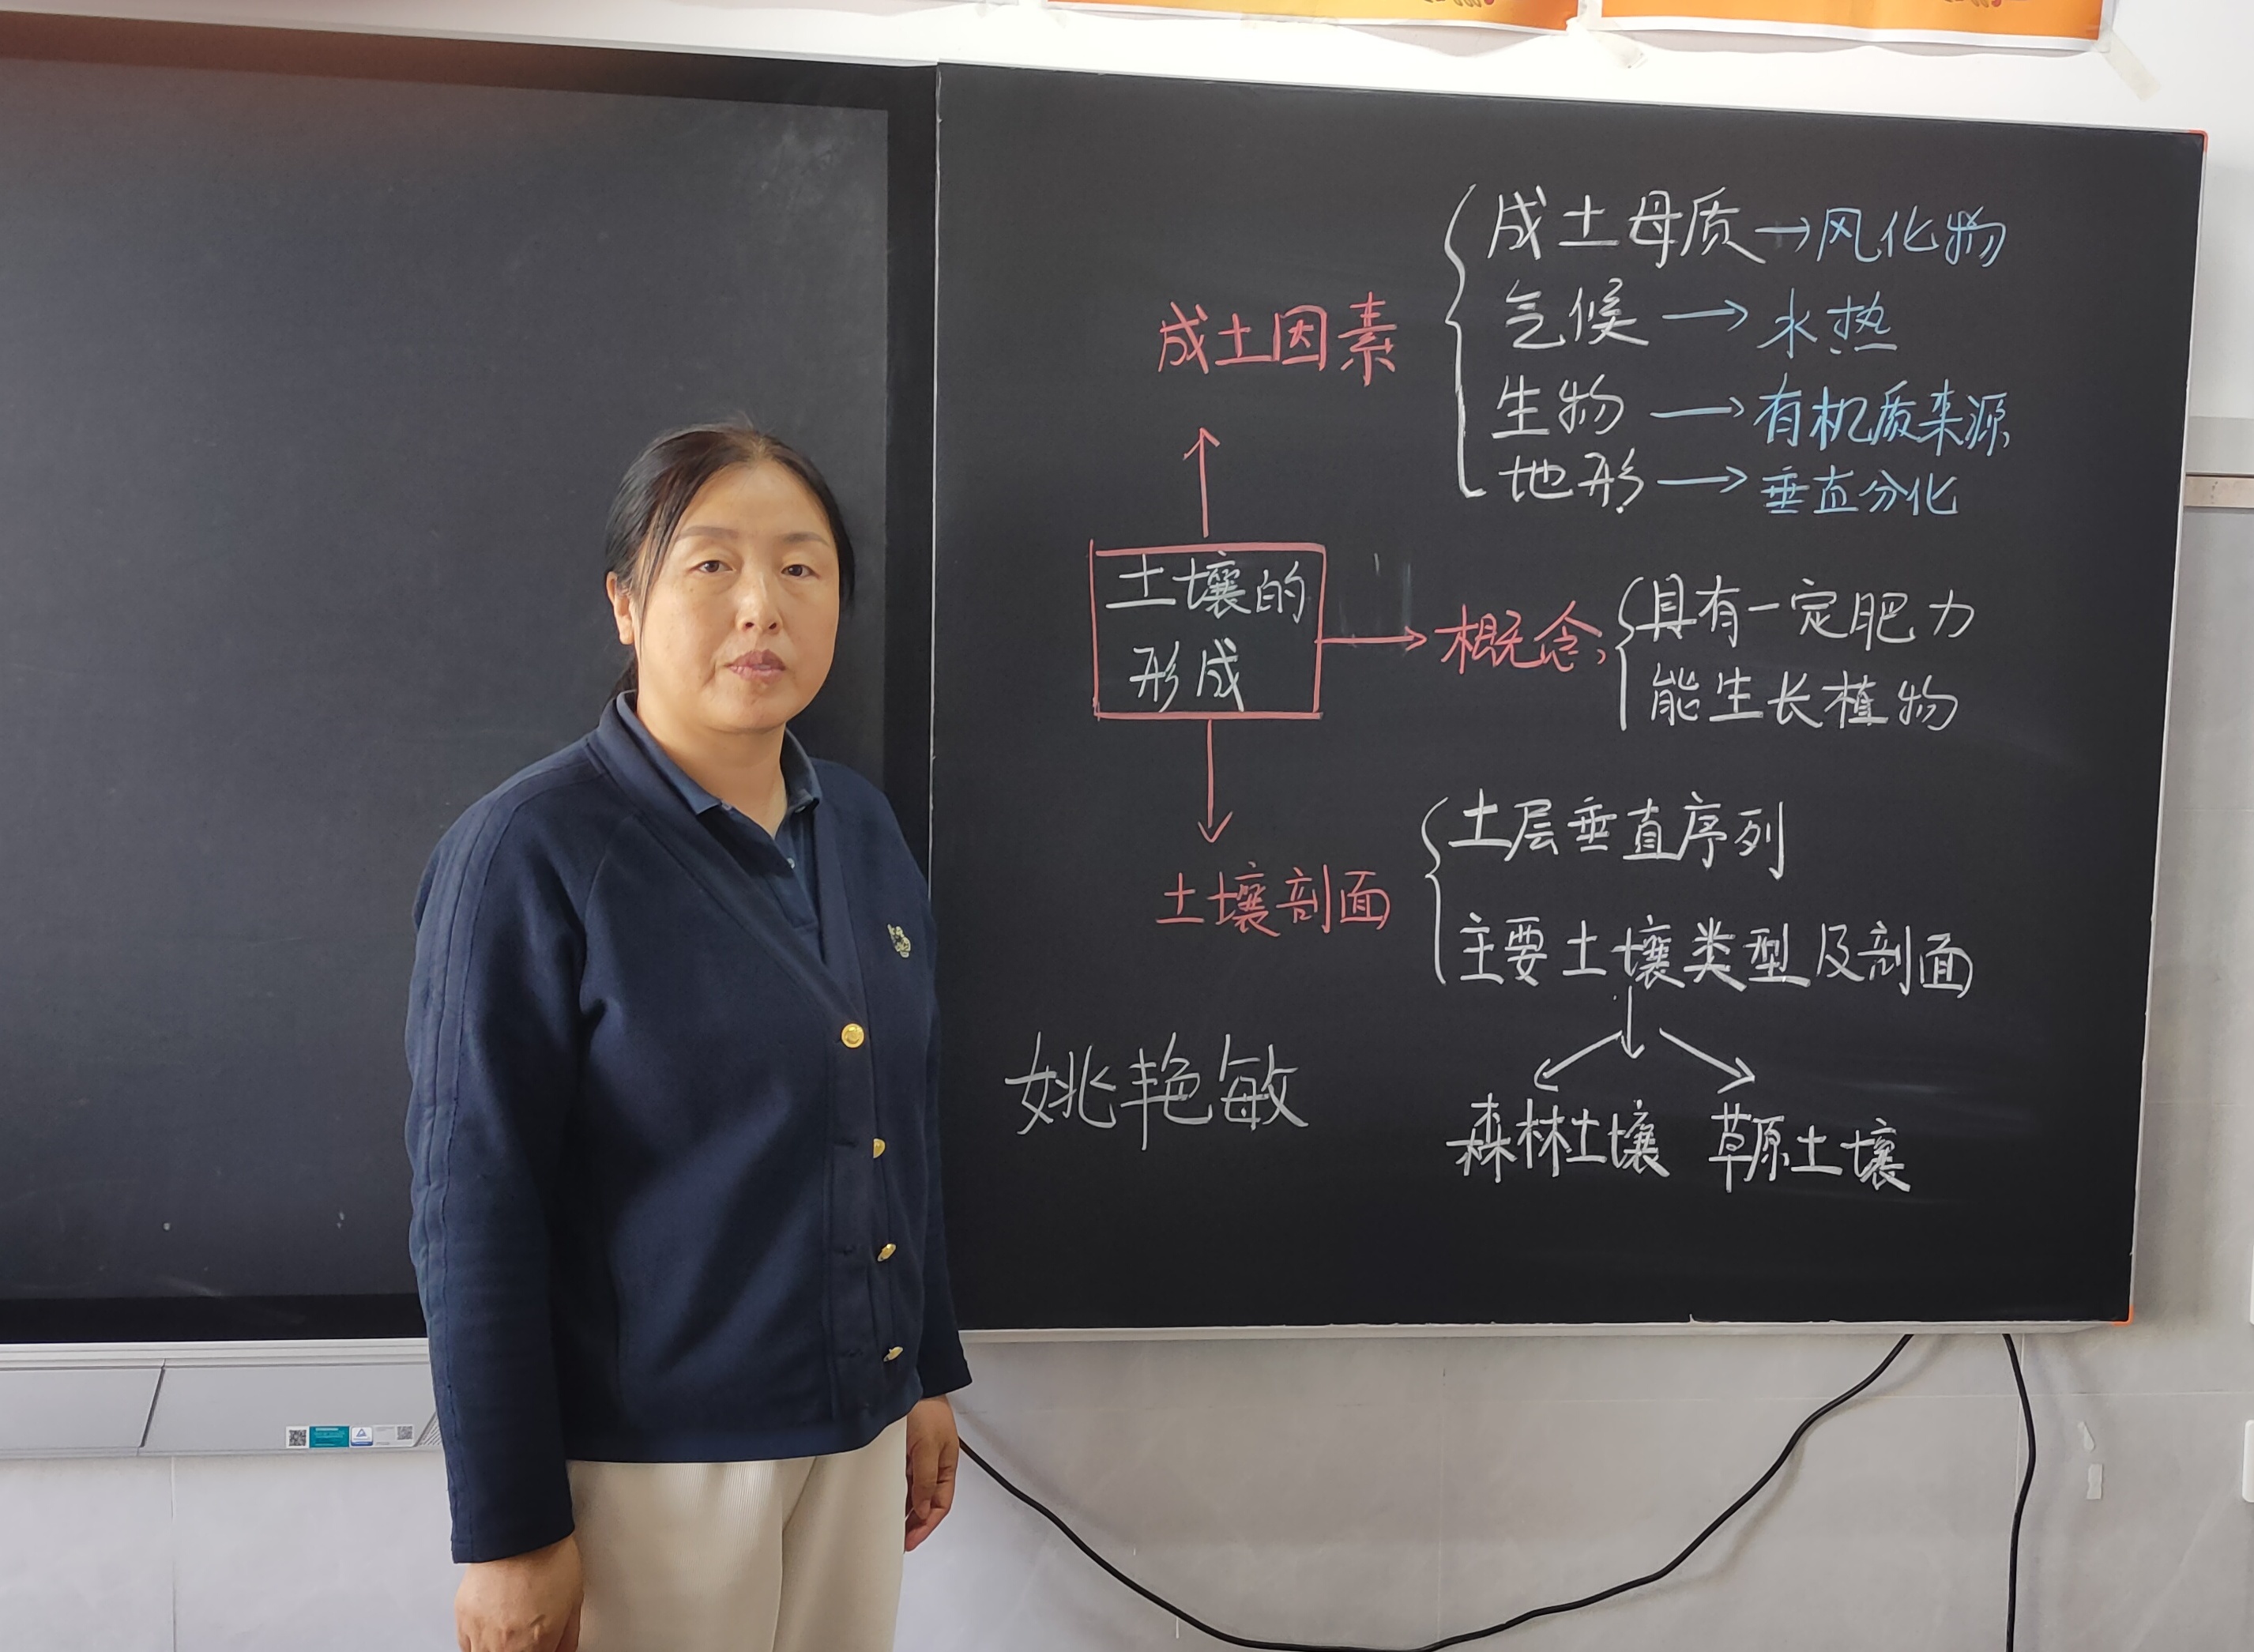 成土因素
成土母质→风化物
气候→水热
生物→有机质来源
地形→垂直分化
土壤的
形成
概念
具有一定肥力
能生长植物
土壤剖面
土层垂直序列
主要土壤类型及剖面
森林土壤 草原土壤
姚艳敏